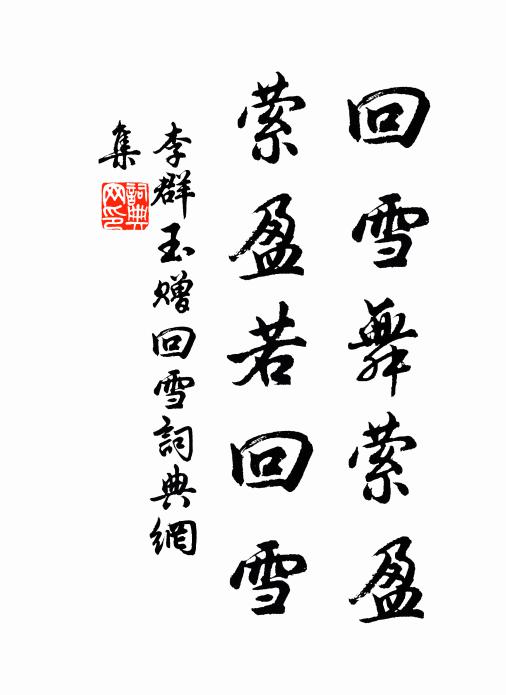 回雪舞萦盈
萦盈若回雪
李群玉赠回雪詞典網
集
詞典网印